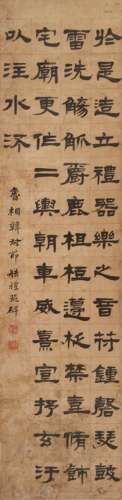 於是造立禮器樂之音符鍾磬瑟鼓
雷洗觴觚爵鹿柤梪籩柉禁壺脩飾
宅廟更作二輿朝車威熹宣抒玄汙
以注水流
魯相韓 碑